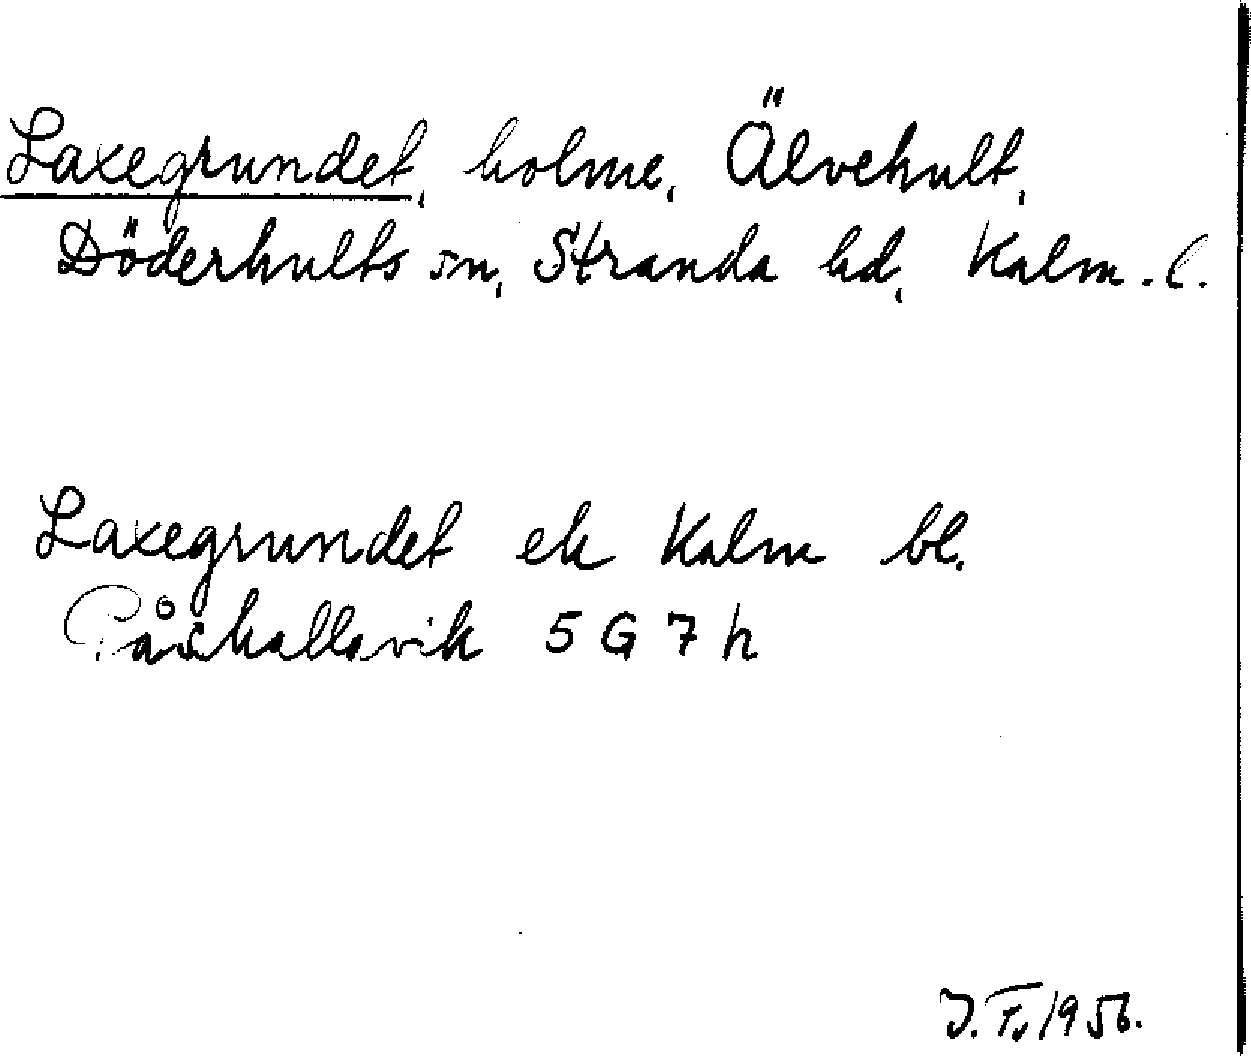 Laxegrundet, holme, Älvehult,
Döderhults sn, Stranda hd, Kalm. l.
Laxegrundet ek Kalm bl.
Påskallavik 5 G 7 h
J. F. 1956.